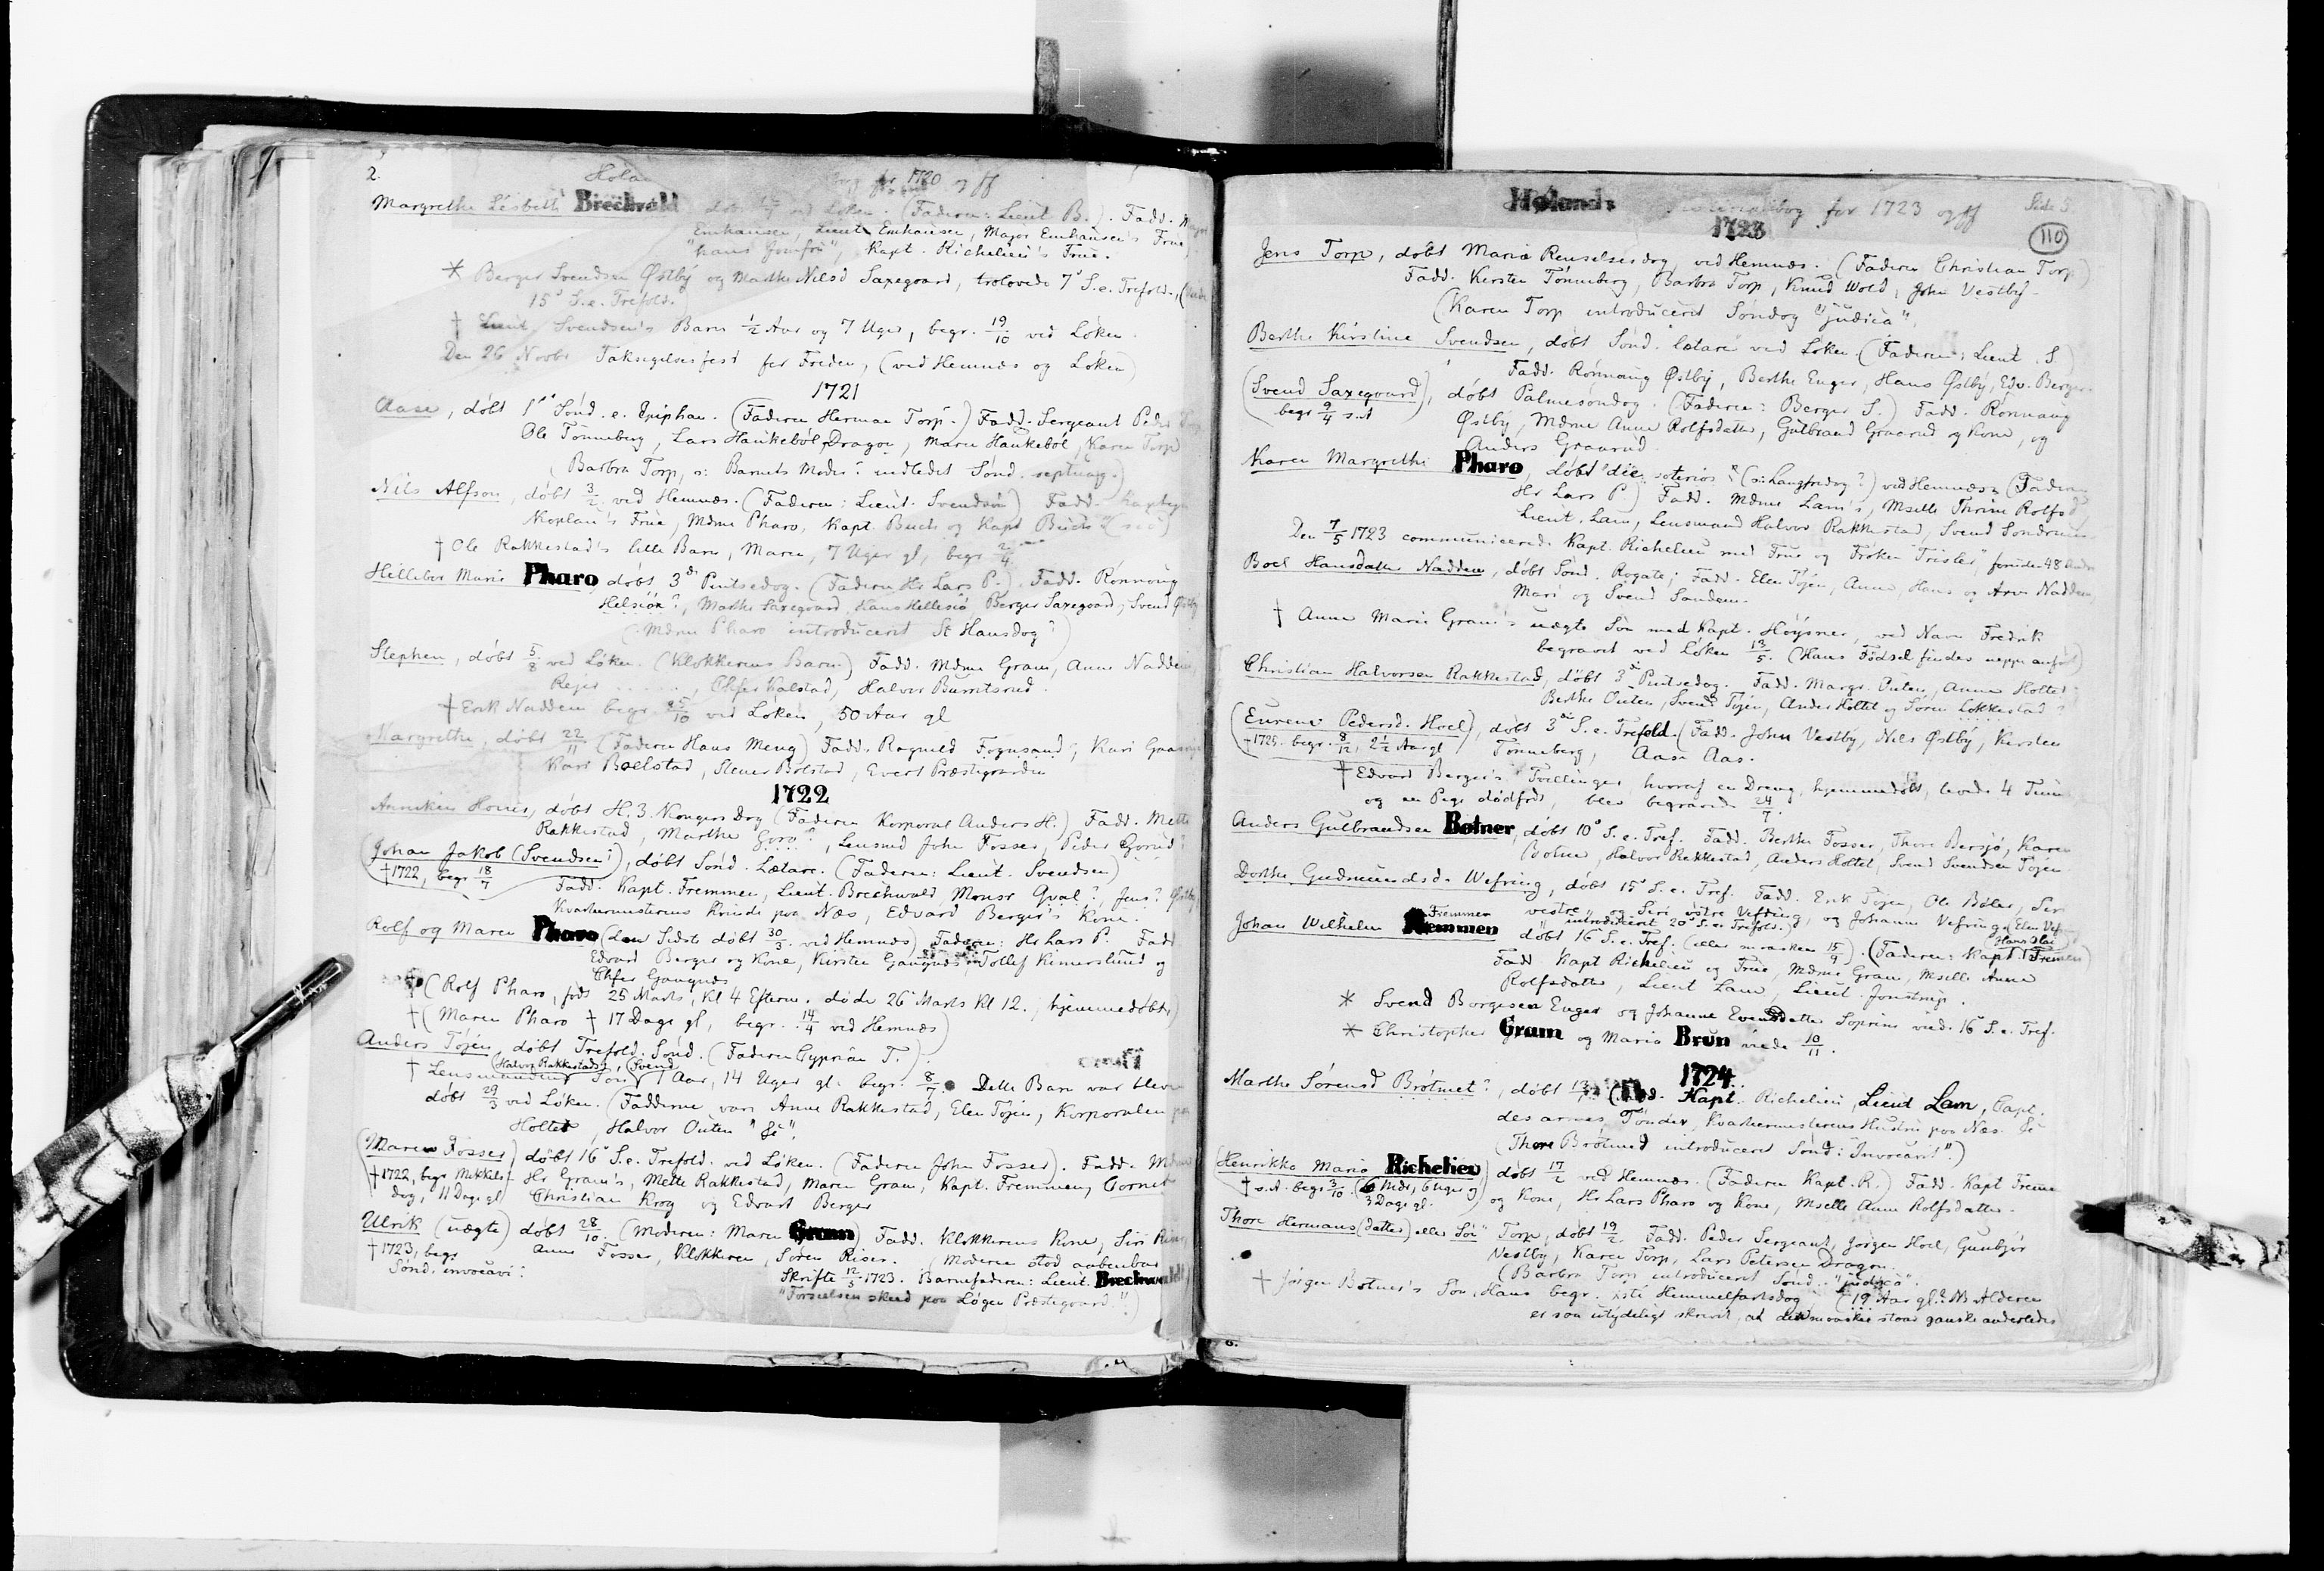 2.
Høla bog for 1720 og ff
Margrethe Lisbeth Brechwald døbt ved Løken. (Faderen: Lieut B.). Fadd. Major
Emhausen, Lieut Emhausen, Major Emhausen's Frue,
"hans Jomfru", Kapt. Richelieu's Frue.
* Berger Svendsen Østby og Marthe Nilsd Saxegaard, trolovede 7de S.e. Trefold.,
15de S.e. Trefold.)
† Lieut Svendsen's Barn ½ Aar og 7 Uger, begr. 19/10 ved Løken.
Den 26 Novbr Taksigelsesfest for Freden, (ved Hemnæs og Løken)
1721
Aase, døbt 1ste Sønd. e. Epiphan. (Faderen Herman Torp.) Fadd. Sergeant Peder
Ole Tønneberg, Lars Hankebøl Dragon, Maren Hankebøl, Karen Torp
(Barbra Torp, o: Barnets Moder? indledet Sønd. septuag.)
Nils Alfson, døbt 3/2 ved Hemnæs. (Faderen: Lieut. Svendsøn) Fadd. Kaptejn
Koplan's Frue, Mdme Pharo, Kapt. Buch og Kapt Buch" (sic)
† Ole Rakkestad's lille Barn, Maren, 7 Uger gl, begr 2/4
Hilleber Marie Pharo døbt 3de Pintsedag. (Faderen Hr Lars P.). Fadd. Rønnaug
Helsiøn?, Marthe Saxegaard, Hans Hellesiø, Berger Saxegaard, Svend Østby
(Mdme Pharo introduceret St Hansdag?)
Stephen, døbt 5/8 ved Løken. (Klokkerens Barn) Fadd. Mdme Gram, Anne Nadden,
Rejer ......, Chfer Kalstad, Halvor Burntsrud.
† Erik Nadden begr 25/10 ved Løken, 50 Aar gl
Margrethe, døbt 22/11 (Faderen Hans Meng) Fadd. Ragnild Fognsand?, Kari
Kari Bøelstad, Stener Bølstad, Evert Præstegaarden
1722
Anniken Hornes, døbt H. 3 Kongers Dag (Faderen Korporal Anders H.) Fadd. Mette
Rakkestad, Marthe Goro?, Lensmd John Fosser, Peder Gorud?
(Johan Jakob (Svendsen?)), døbt Sønd. Lætare. (Faderen: Lieut. Svendsen)
† 1722, begr 18/7
Fadd. Kapt. Fremmen, Lieut. Brechwald, Monsr Qval?, Jens? Østby
Kvartermesterens Kvinde paa Næs, Edvard Berger's Kone.
Rolf og Maren Pharo (den Sidste døbt 30/3 ved Hemnæs) Faderen: Hr Lars P. Fadd
Edvard Berger og Kone, Kirsten Gangnæs Tollef Kimerslund og
Chfer Gangnæs
† (Rolf Pharo, føds 25 Marts, Kl 4 Efterm. døde 26 Marts Kl 12., hjemmedøbt)
† (Maren Pharo † 17 Dage gl, begr. 14/4 ved Hemnæs)
Anders Tøjen, døbt Trefold. Sønd. (Faderen Cyprian T.)
(Halvor Rakkestads), (Svend
† Lensmandens Søn 1 Aar, 14 Uger gl. begr. 8/7. Dette Barn var blev
døbt 29/3 ved Løken. (Fadderne vare Anne Rakkestad, Elen Tøjen, Korporalen paa
Holted, Halvor Outen "&".
(Maren Fosser) døbt 16de S.e. Trefold. ved Løken. (Faderen John Fosser). Fadd. Mdme
† 1722, begr. Mikkels- Hr Gram's, Mette Rakkestad, Maren Gram, Kapt. Fremmen, Cornet
dag, 11 Dage gl) Christian Krog og Edvart Berger
Ulrik (uægte) døbt 28/10. (Moderen: Maren Gram) Fadd. Klokkerens Kone, Siri
† 1723, begr Anne Fosser, Klokkeren, Søren Riser. (Moderen stod aabenbar
Sønd. invocavi. Skrifte 12/5 1723. Barnefaderen: Lieut. Brechwald
"Forseelsen skeed paa Løgen Præstegaard".)
Hølands bog for 1723 og ff Side 5
110
1723
Jens Torp, døbt Mariæ Renselsesdag ved Hemnæs. (Faderen Christian Torp)
Fadd. Kersten Tønneberg, Barbra Torp, Knud Wold, John Vestby.
(Karen Torp introduceret Søndag "Judica".
Berthe Kirstine Svendsen, døbt Sønd. "lætare" ved Løken. (Faderen: Lieut. S.)
Fadd. Rønnaug Østby, Berthe Enger, Hans Østby, Edv. Berger
(Svend Saxegaard), døbt Palmesøndag. (Faderen: Berger S.) Fadd. Rønnaug
begr 9/4 s.A Østby, Mdme Anne Rolfsdatter, Gulbrand Graarud og Kone, og
Anders Graarud.
Karen Margrethe Pharo, døbt "die soterios" (o: Langfredag?) ved Hemnæs (Faderen
Hr Lars P) Fadd. Mdme Lam's, Mselle Thrine Rolfsd
Lieut. Lam, Lensmand Halvor Rakkestad, Svend Sondrum
Den 7/5 1723 communicerede Kapt. Richelieu med Frue og Frøken "Trisler", foruden 48 Andre
Boel Hansdatter Nadden, døbt Sønd. Rogate; Fadd. Elen Tøjen, Anne, Hans og Arve Nadden,
Mari og Svend Sanden.
† Anne Marie Gram's uægte Søn med Kapt. Høysner, ved Navn Fredrik
begravet ved Løken 13/5. (Hans Fødsel findes neppe anført)
Christian Halvorsen Rakkestad, døbt 3de Pintsedag. Fadd. Margr. Outen, Anne Holtet
Berthe Outen, Svend Tøjen, Anders Holtet og Søren Løkkestad
(Eurene Pedersd. Hoel), døbt 3de S.e. Trefold. (Fadd. John Vestby, Nils Østby, Kirsten
† 1725. begr. 8/12, 2½ Aar gl Tønneberg, Aase Aas.
† Edvard Berger's Tvillinger, hvoraf en Dreng, hjemmedøbt, levede 4 Timer
og en Pige dødfødt, blev begravede 24/7.
Anders Gulbrandsen Botner, døbt 10de S.e. Tref. Fadd. Berthe Fosser, Thore Bersjø, Karen
Botner, Halvor Rakkestad, Anders Holtet, Svend Svendsen Tøjen
Dorthe Gudmundsd. Wefring, døbt 15de S.e. Tref. Fadd. Erik Tøjen, Ole Bøler, Siri
vestre og Siri østre Vefring, og Johanne Vefring (Elen Vefring
introduceret 20de S.e. Trefold.)
Fremmen
Johan Wilhelm Fremmen døbt 16de S.e. Tref. (eller maaskee 15/9). (Faderen: Kapt. Fremmen)
Fadd. Kapt Richelieu og Frue, Mdme Gram, Mselle Anne
Rolfsdatter, Lieut Lam, Lieut. Jonstrup.
* Svend Borgesen Enger og Johanne Evensdatter Soprim viede 16de S.e. Tref.
* Christopher Gram og Maria Brun viede 10/11.
1724.
Marthe Sørensd Brøtmet?, døbt (Fadd. Kapt. Richelieu, Lieut Lam, Capt.
des armes Tønder, Kvartermesterens Hustru paa Næs. &
(Thore Brøtmed introduceret Sønd: "Invocavit".)
Henrikka Maria Richelieu, døbt 17/2 ved Hemnæs. (Faderen Kapt. R.) Fadd. Kapt Fremmen
† s.A. begr 3/10 (6 Mdr, 6 Uger og og Kone, Hr Lars Pharo og Kone, Mselle Anne Rolfsdatter.
3 Dage gl.
Thore Hermans (datter) eller Søn Torp, døbt 19/2. Fadd. Peder Sergeant, Jørgen Hoel, Gunbjør
Vestby, Karen Torp, Lars Petersen Dragon.
(Barbra Torp introduceret Sønd. "judica".
† Jørgen Botner's Søn, Hans begr. Xsti Himmelfartsdag (19 Aar gl? NB Alderen
er saa utydeligt skrevet, at den maaskee staar ganske anderledes